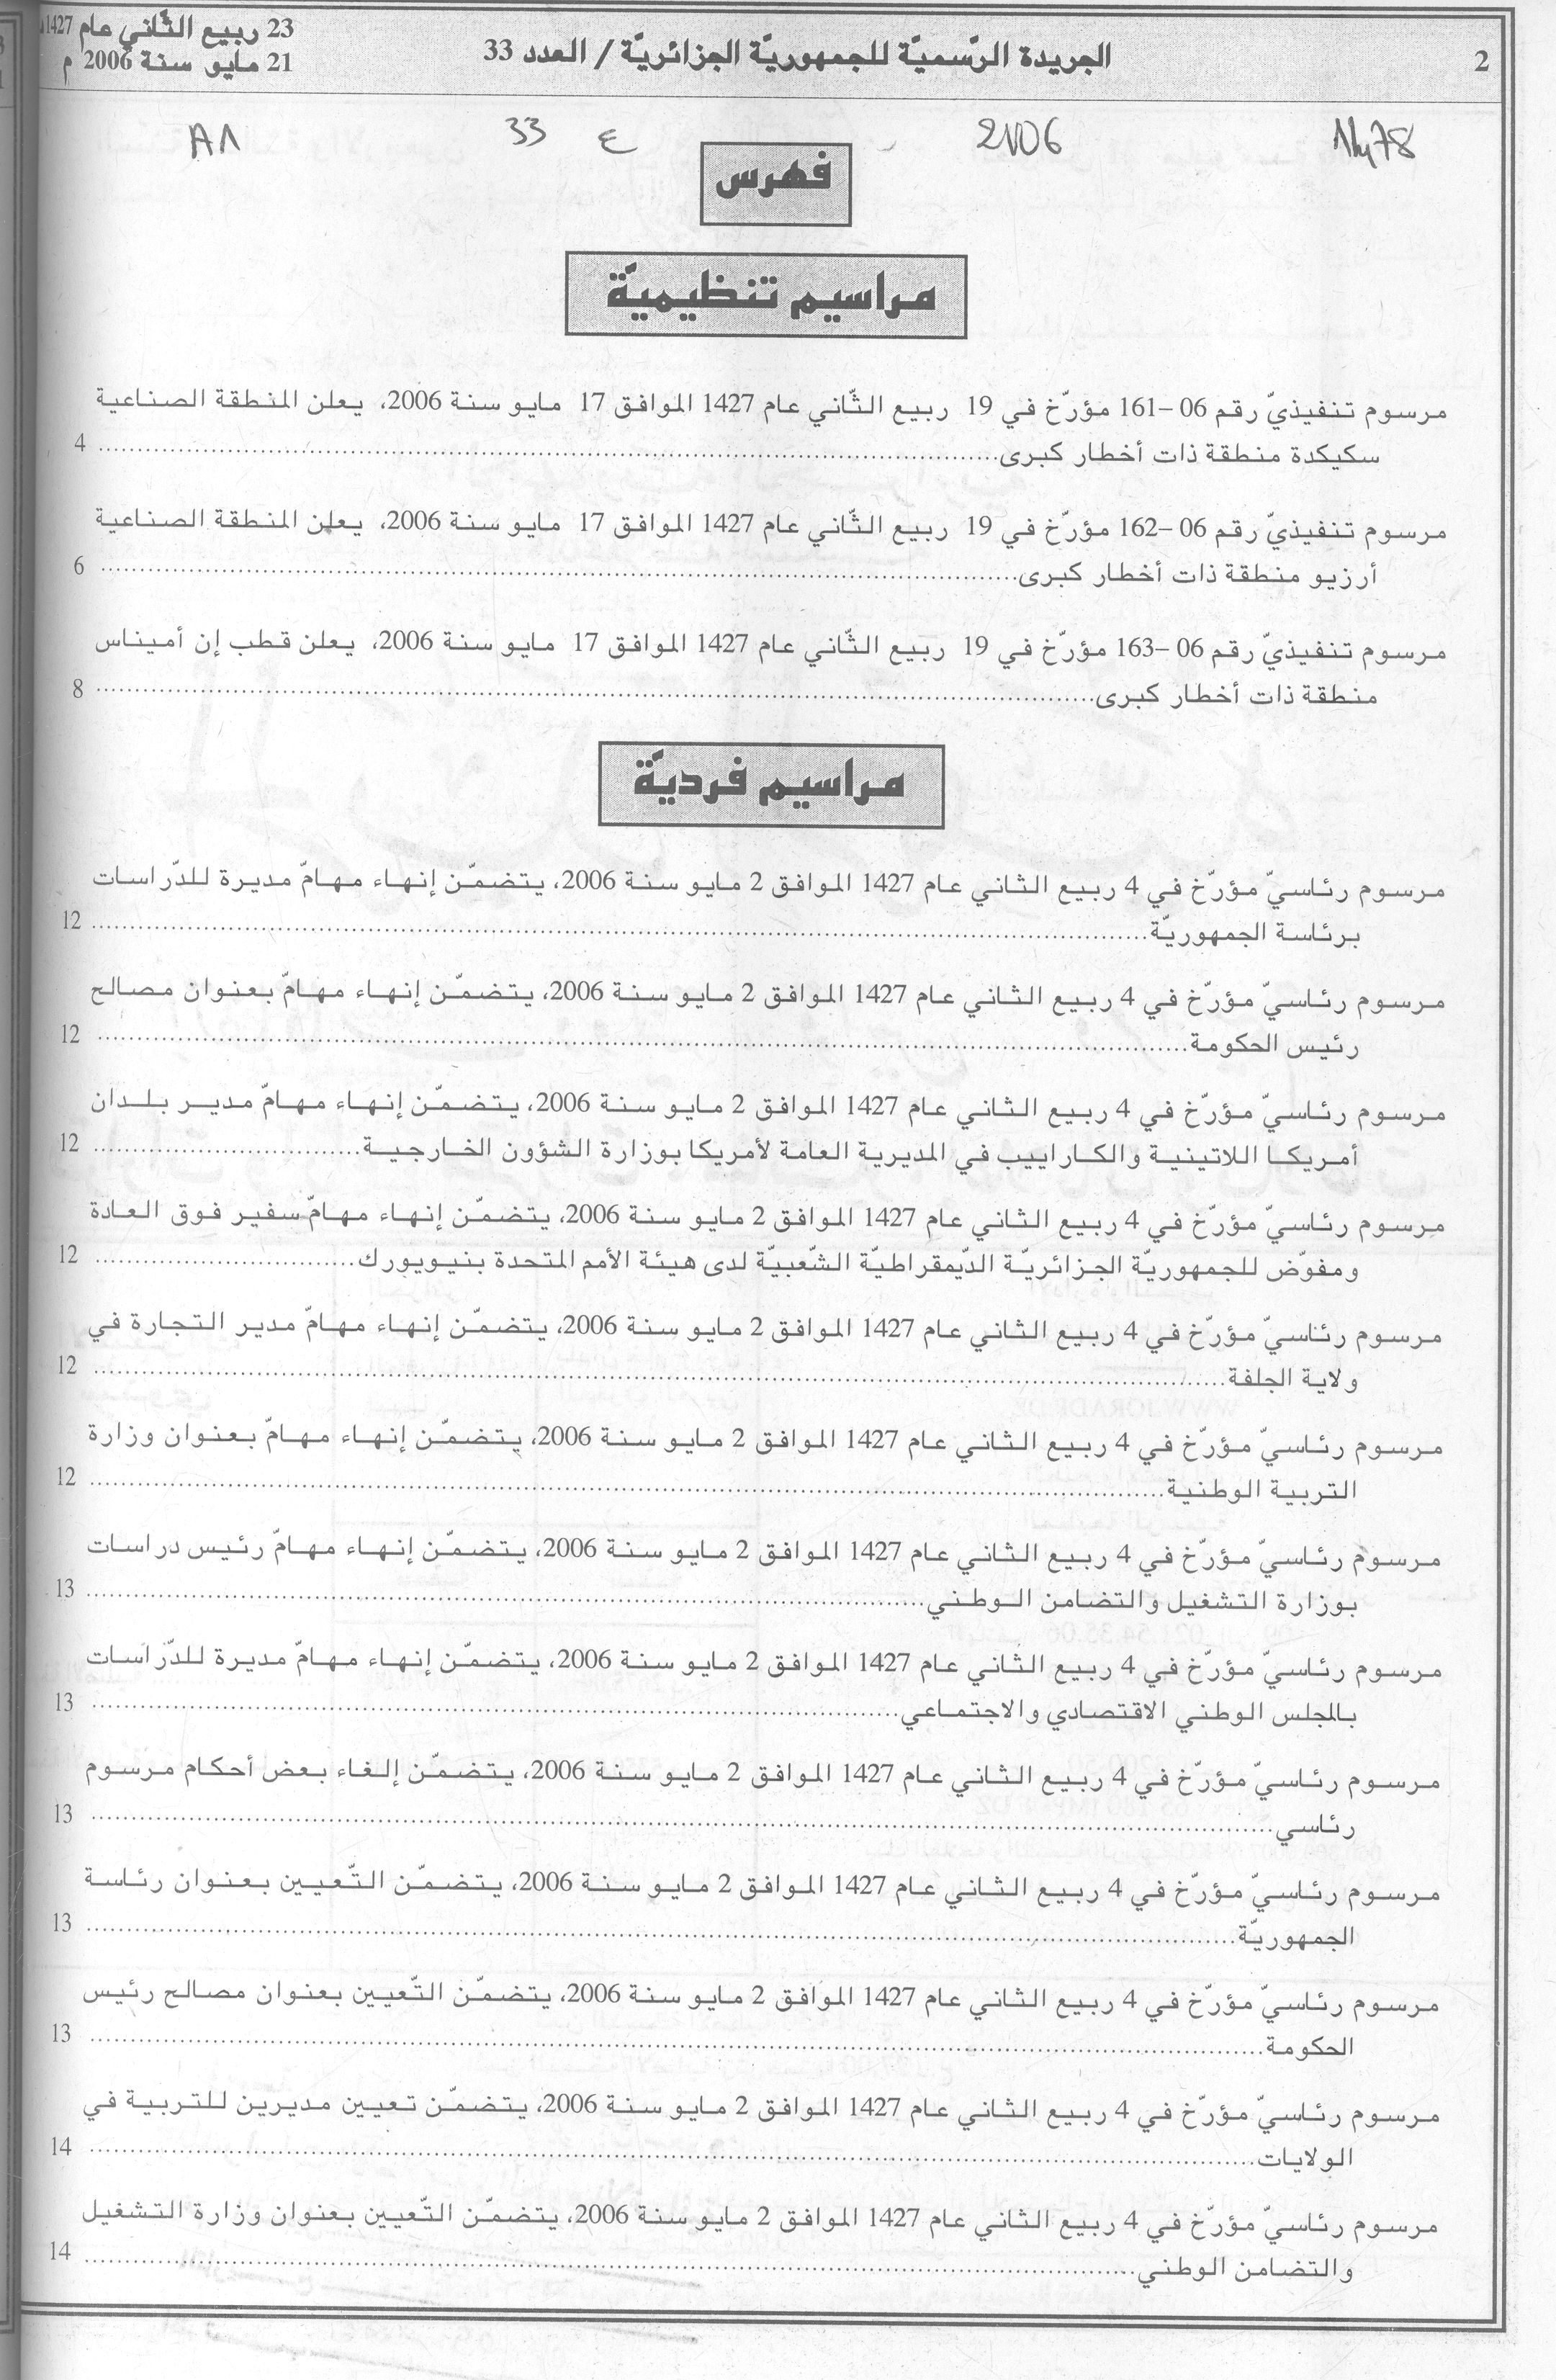 2
الجريدة الرّسميّة للجمهوريّة الجزائريّة / العدد 33
23 ربيع الثّاني عام 1427هـ
21 مايو سنة 2006 م
ع 33
فهرس
مراسيم تنظيميّة
مرسوم تنفيذيّ رقم 06–161 مؤرّخ في 19 ربيع الثّاني عام 1427 الموافق 17 مايو سنة 2006، يعلن المنطقة الصناعية
سكيكدة منطقة ذات أخطار كبرى........ 4
مرسوم تنفيذيّ رقم 06–162 مؤرّخ في 19 ربيع الثّاني عام 1427 الموافق 17 مايو سنة 2006، يعلن المنطقة الصناعية
أرزيو منطقة ذات أخطار كبرى........ 6
مرسوم تنفيذيّ رقم 06–163 مؤرّخ في 19 ربيع الثّاني عام 1427 الموافق 17 مايو سنة 2006، يعلن قطب إن أميناس
منطقة ذات أخطار كبرى........ 8
مراسيم فرديّة
مرسوم رئاسيّ مؤرّخ في 4 ربيع الثاني عام 1427 الموافق 2 مايو سنة 2006، يتضمّن إنهاء مهامّ مديرة للدّراسات
برئاسة الجمهوريّة........ 12
مرسوم رئاسيّ مؤرّخ في 4 ربيع الثاني عام 1427 الموافق 2 مايو سنة 2006، يتضمّن إنهاء مهامّ بعنوان مصالح
رئيس الحكومة........ 12
مرسوم رئاسيّ مؤرّخ في 4 ربيع الثاني عام 1427 الموافق 2 مايو سنة 2006، يتضمّن إنهاء مهامّ مدير بلدان
أمريكا اللاتينية والكاراييب في المديرية العامة لأمريكا بوزارة الشؤون الخارجية........ 12
مرسوم رئاسيّ مؤرّخ في 4 ربيع الثاني عام 1427 الموافق 2 مايو سنة 2006، يتضمّن إنهاء مهامّ سفير فوق العادة
ومفوّض للجمهوريّة الجزائريّة الدّيمقراطيّة الشّعبيّة لدى هيئة الأمم المتحدة بنيويورك........ 12
مرسوم رئاسيّ مؤرّخ في 4 ربيع الثاني عام 1427 الموافق 2 مايو سنة 2006، يتضمّن إنهاء مهامّ مدير التجارة في
ولاية الجلفة........ 12
مرسوم رئاسيّ مؤرّخ في 4 ربيع الثاني عام 1427 الموافق 2 مايو سنة 2006، يتضمّن إنهاء مهامّ بعنوان وزارة
التربية الوطنية........ 12
مرسوم رئاسيّ مؤرّخ في 4 ربيع الثاني عام 1427 الموافق 2 مايو سنة 2006، يتضمّن إنهاء مهامّ رئيس دراسات
بوزارة التشغيل والتضامن الوطني........ 13
مرسوم رئاسيّ مؤرّخ في 4 ربيع الثاني عام 1427 الموافق 2 مايو سنة 2006، يتضمّن إنهاء مهامّ مديرة للدّراسات
بالمجلس الوطني الاقتصادي والاجتماعي........ 13
مرسوم رئاسيّ مؤرّخ في 4 ربيع الثاني عام 1427 الموافق 2 مايو سنة 2006، يتضمّن إلغاء بعض أحكام مرسوم
رئاسي........ 13
مرسوم رئاسيّ مؤرّخ في 4 ربيع الثاني عام 1427 الموافق 2 مايو سنة 2006، يتضمّن التّعيين بعنوان رئاسة
الجمهوريّة........ 13
مرسوم رئاسيّ مؤرّخ في 4 ربيع الثاني عام 1427 الموافق 2 مايو سنة 2006، يتضمّن التّعيين بعنوان مصالح رئيس
الحكومة........ 13
مرسوم رئاسيّ مؤرّخ في 4 ربيع الثاني عام 1427 الموافق 2 مايو سنة 2006، يتضمّن تعيين مديرين للتربية في
الولايات........ 14
مرسوم رئاسيّ مؤرّخ في 4 ربيع الثاني عام 1427 الموافق 2 مايو سنة 2006، يتضمّن التّعيين بعنوان وزارة التشغيل
والتضامن الوطني........ 14